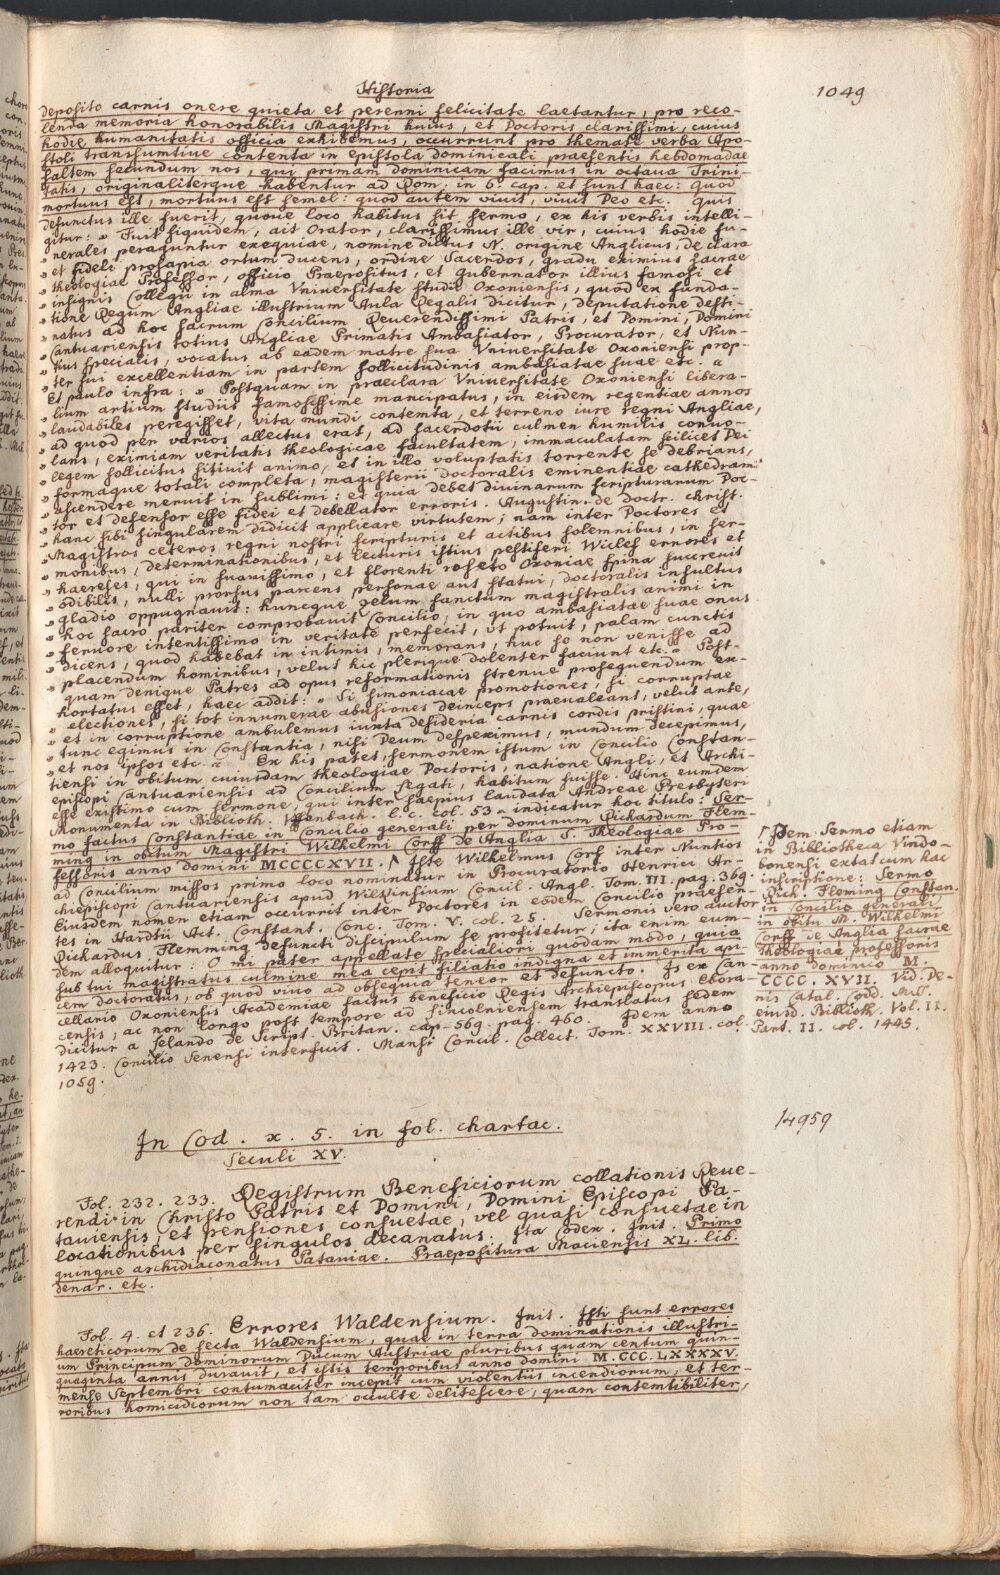 Historia
1049
deposito carnis onere quieta et perenni felicitate laetantur, pro reco-
lenda memoria honorabilis Magistri huius, et Doctoris clarissimi, cuius
hodie humanitatis officia exhibemus, occurrunt pro themate verba Apo-
stoli transsumtive contenta in epistola dominicali praesentis hebdomadae
saltem secundum nos, qui primam dominicam facimus in octava Trini-
tatis, originaliterque habentur ad Rom. in 6. cap. et sunt haec: quod
mortuus est, mortuus est semel: quod autem vivit, vivit Deo etc. quis
defunctus ille fuerit, quove loco habitus sit sermo, ex his verbis intelli-
gitur: „ Fuit siquidem, ait Orator, clarissimus ille vir, cuius hodie fu-
„ nerales peraguntur exequiae, nomine dictus N. origine Anglicus, de clara
„ et fideli prosapia ortum ducens, ordine Sacerdos, gradu eximius sacrae
„ theologiae Professor, officio Praepositus, et gubernator illius famosi et
„ insignis Collegii in alma Vniversitate studii Oxoniensis, quod ex funda-
„ tione Regum Angliae illustrium Aula Regalis dicitur, deputatione desti-
„ natus ad hoc sacrum Concilium Reverendissimi Patris, et Domini, Domini
„ Cantuariensis totius Angliae Primatis Ambasiator, Procurator, et Nun-
„ tius specialis, vocatus ab eadem matre sua Vniversitate Oxoniensi prop-
„ ter sui excellentiam in partem sollicitudinis ambasiatae suae etc. “
Et paulo infra: „ Postquam in praeclara Vniversitate Oxoniensi libera-
„ lium artium studiis famosissime mancipatus, in eisdem regentiae annos
„ laudabiles peregisset, vita mundi contemta, et terreno iure regni Angliae,
„ ad quod per varios allectus erat, ad sacerdotii culmen humilis convo-
„ lans, eximiam veritatis theologicae facultatem, immaculatam scilicet Dei
„ legem sollicitus sitivit animo, et in illo voluptatis torrente se debrians,
„ formaque totali completa, magisterii doctoralis eminentiae cathedram
„ ascendere meruit in sublimi: et quia debet divinarum scripturarum Doc-
„ tor et defensor esse fidei et debellator erroris. Augustin. de doctr. christ.
„ hanc sibi singularem didicit applicare virtutem; nam inter Doctores et
„ Magistros ceteros regni nostri scripturis et actibus solemnibus, in ser-
„ monibus, determinationibus, et lecturis istius pestiferi Wiclef errores et
„ haereses, qui in suavissimo, et florenti roseto Oxoniae spina succrevit
„ odibilis, nulli prorsus parcens personae aut statui, doctoralis insultus
„ gladio oppugnavit: huncque zelum sanctum magistralis animi in
„ hoc sacro pariter comprobavit Concilio, in quo ambasiatae suae onus
„ fervore intentissimo in veritate perfecit, ut potuit, palam cunctis
„ dicens, quod habebat in intimis, memorans, huc se non venisse ad
„ placendum hominibus, velut hic plerique dolenter faciunt etc. “ Post-
quam denique Patres ad opus reformationis strenue prosequendum ex-
hortatus esset, haec addit: „ Si simoniacae promotiones, si corruptae
„ electiones, si tot innumerae abusiones deinceps praevaleant, velut ante,
„ et in corruptione ambulemus iuxta desideria carnis cordis pristini, quae
„ tunc egimus in Constantia, nisi Deum despeximus, mundum decepimus,
„ et nos ipsos etc. “ Ex his patet, sermonem istum in Concilio Constan-
tiensi in obitum cuiusdam theologiae Doctoris, natione Angli, et Archi-
episcopi Cantuariensis ad Concilium Legati, habitum fuisse. Hinc eumdem
esse existimo cum sermone, qui inter saepius laudata Andreae Presbyteri
Monumenta in Biblioth. Uffenbach. l. c. col. 53. indicatur hoc titulo: Ser-
mo factus Constantiae in Concilio generali per dominum Rickardum Flem-
ming in obitum Magistri Wilhelmi Corff de Anglia S. Theologiae Pro-
fessoris anno domini MCCCCXVII. Λ Iste Wilhelmus Corf inter Nuntios
ad Concilium missos primo loco nominatur in Procuratorio Henrici Ar-
chiepiscopi Cantuariensis apud Wilkinsium Concil. Angl. Tom. III. pag. 369.
Eiusdem nomen etiam occurrit inter Doctores in eodem Concilio praesen-
tes in Hardtii Act. Constant. Conc. Tom. V. col. 25. Sermonis vero auctor
Rickardus Flemming defuncti discipulum se profitetur; ita enim eum-
dem alloquitur: O mi pater appellate specialiori quodam modo, quia
sub tui magistratus culmine mea cepit filiatio indigna et immerita api-
cem doctoratus, ob quod vivo ad obsequia teneor et defuncto. Is ex Can-
cellario Oxoniensis Academiae factus beneficio Regis Archiepiscopus Ebora-
censis, ac non longo post tempore ad Lincolniensem translatus sedem
dicitur a Lelando de Script. Britan. cap. 569. pag. 460. Idem anno
1423. Concilio Senensi interfuit. Mansi Concil. Collect. Tom. XXVIII. col.
1059.
Λ Idem Sermo etiam
in Bibliotheca Vindo-
bonensi extat cum hac
inscriptione: Sermo
Rich. Fleming Constan.
in Concilio generali,
in obitu M. Wilhelmi
Corff de Anglia sacrae
Theologiae professoris
anno dominico M.
CCCC. XVII. Vid. De-
nis Catal. Codd. Mss.
eiusd. Biblioth. Vol. II.
Part. II. col. 1445.
In Cod. x. 5. in fol. chartac.
Seculi XV.
14959
Fol. 232. 233. Registrum Beneficiorum collationis Reve-
rendi in Christo Patris et Domini, Domini Episcopi Pa-
taviensis, et pensiones consuetae, vel quasi consuetae in
locationibus per singulos decanatus. Ita Codex. Init. Primo
quinque archidiaconatus Pataviae. Praepositura Maciensis XL. lib.
denar. etc.
Fol. 4. et 236. Errores Waldensium. Init. Isti sunt errores
haereticorum de secta Waldensium, quae in terra dominationis illustri-
um Principum dominorum Ducum Austriae pluribus quam centum quin-
quaginta annis duravit, et istis temporibus anno domini M. CCC. LXXXXV.
mense Septembri contumaciter incepit cum violentiis incendiorum, et ter-
roribus homicidiorum non tam occulte delitescere, quam contemtibiliter,